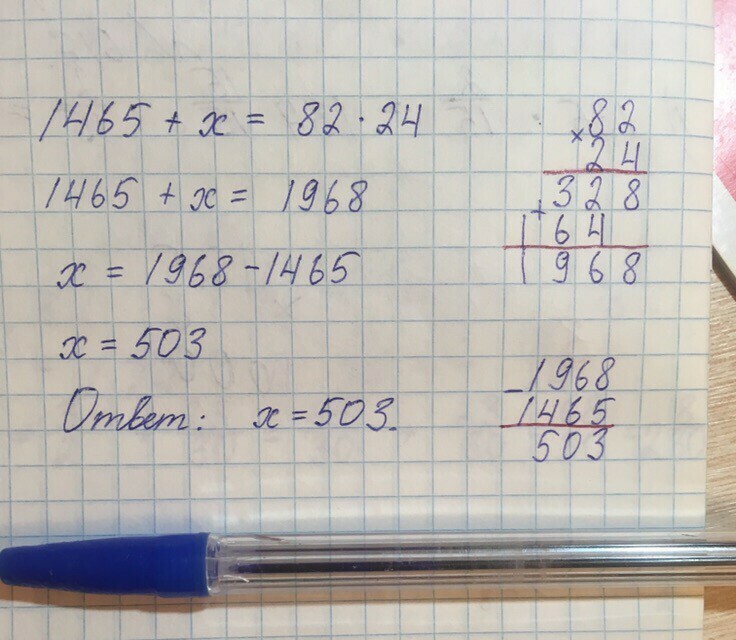 1465 + x = 82 · 24
1465 + x = 1968
x = 1968 - 1465
x = 503
Ответ: x = 503.
× 82
24
328
+ 164
1968
- 1968
1465
503